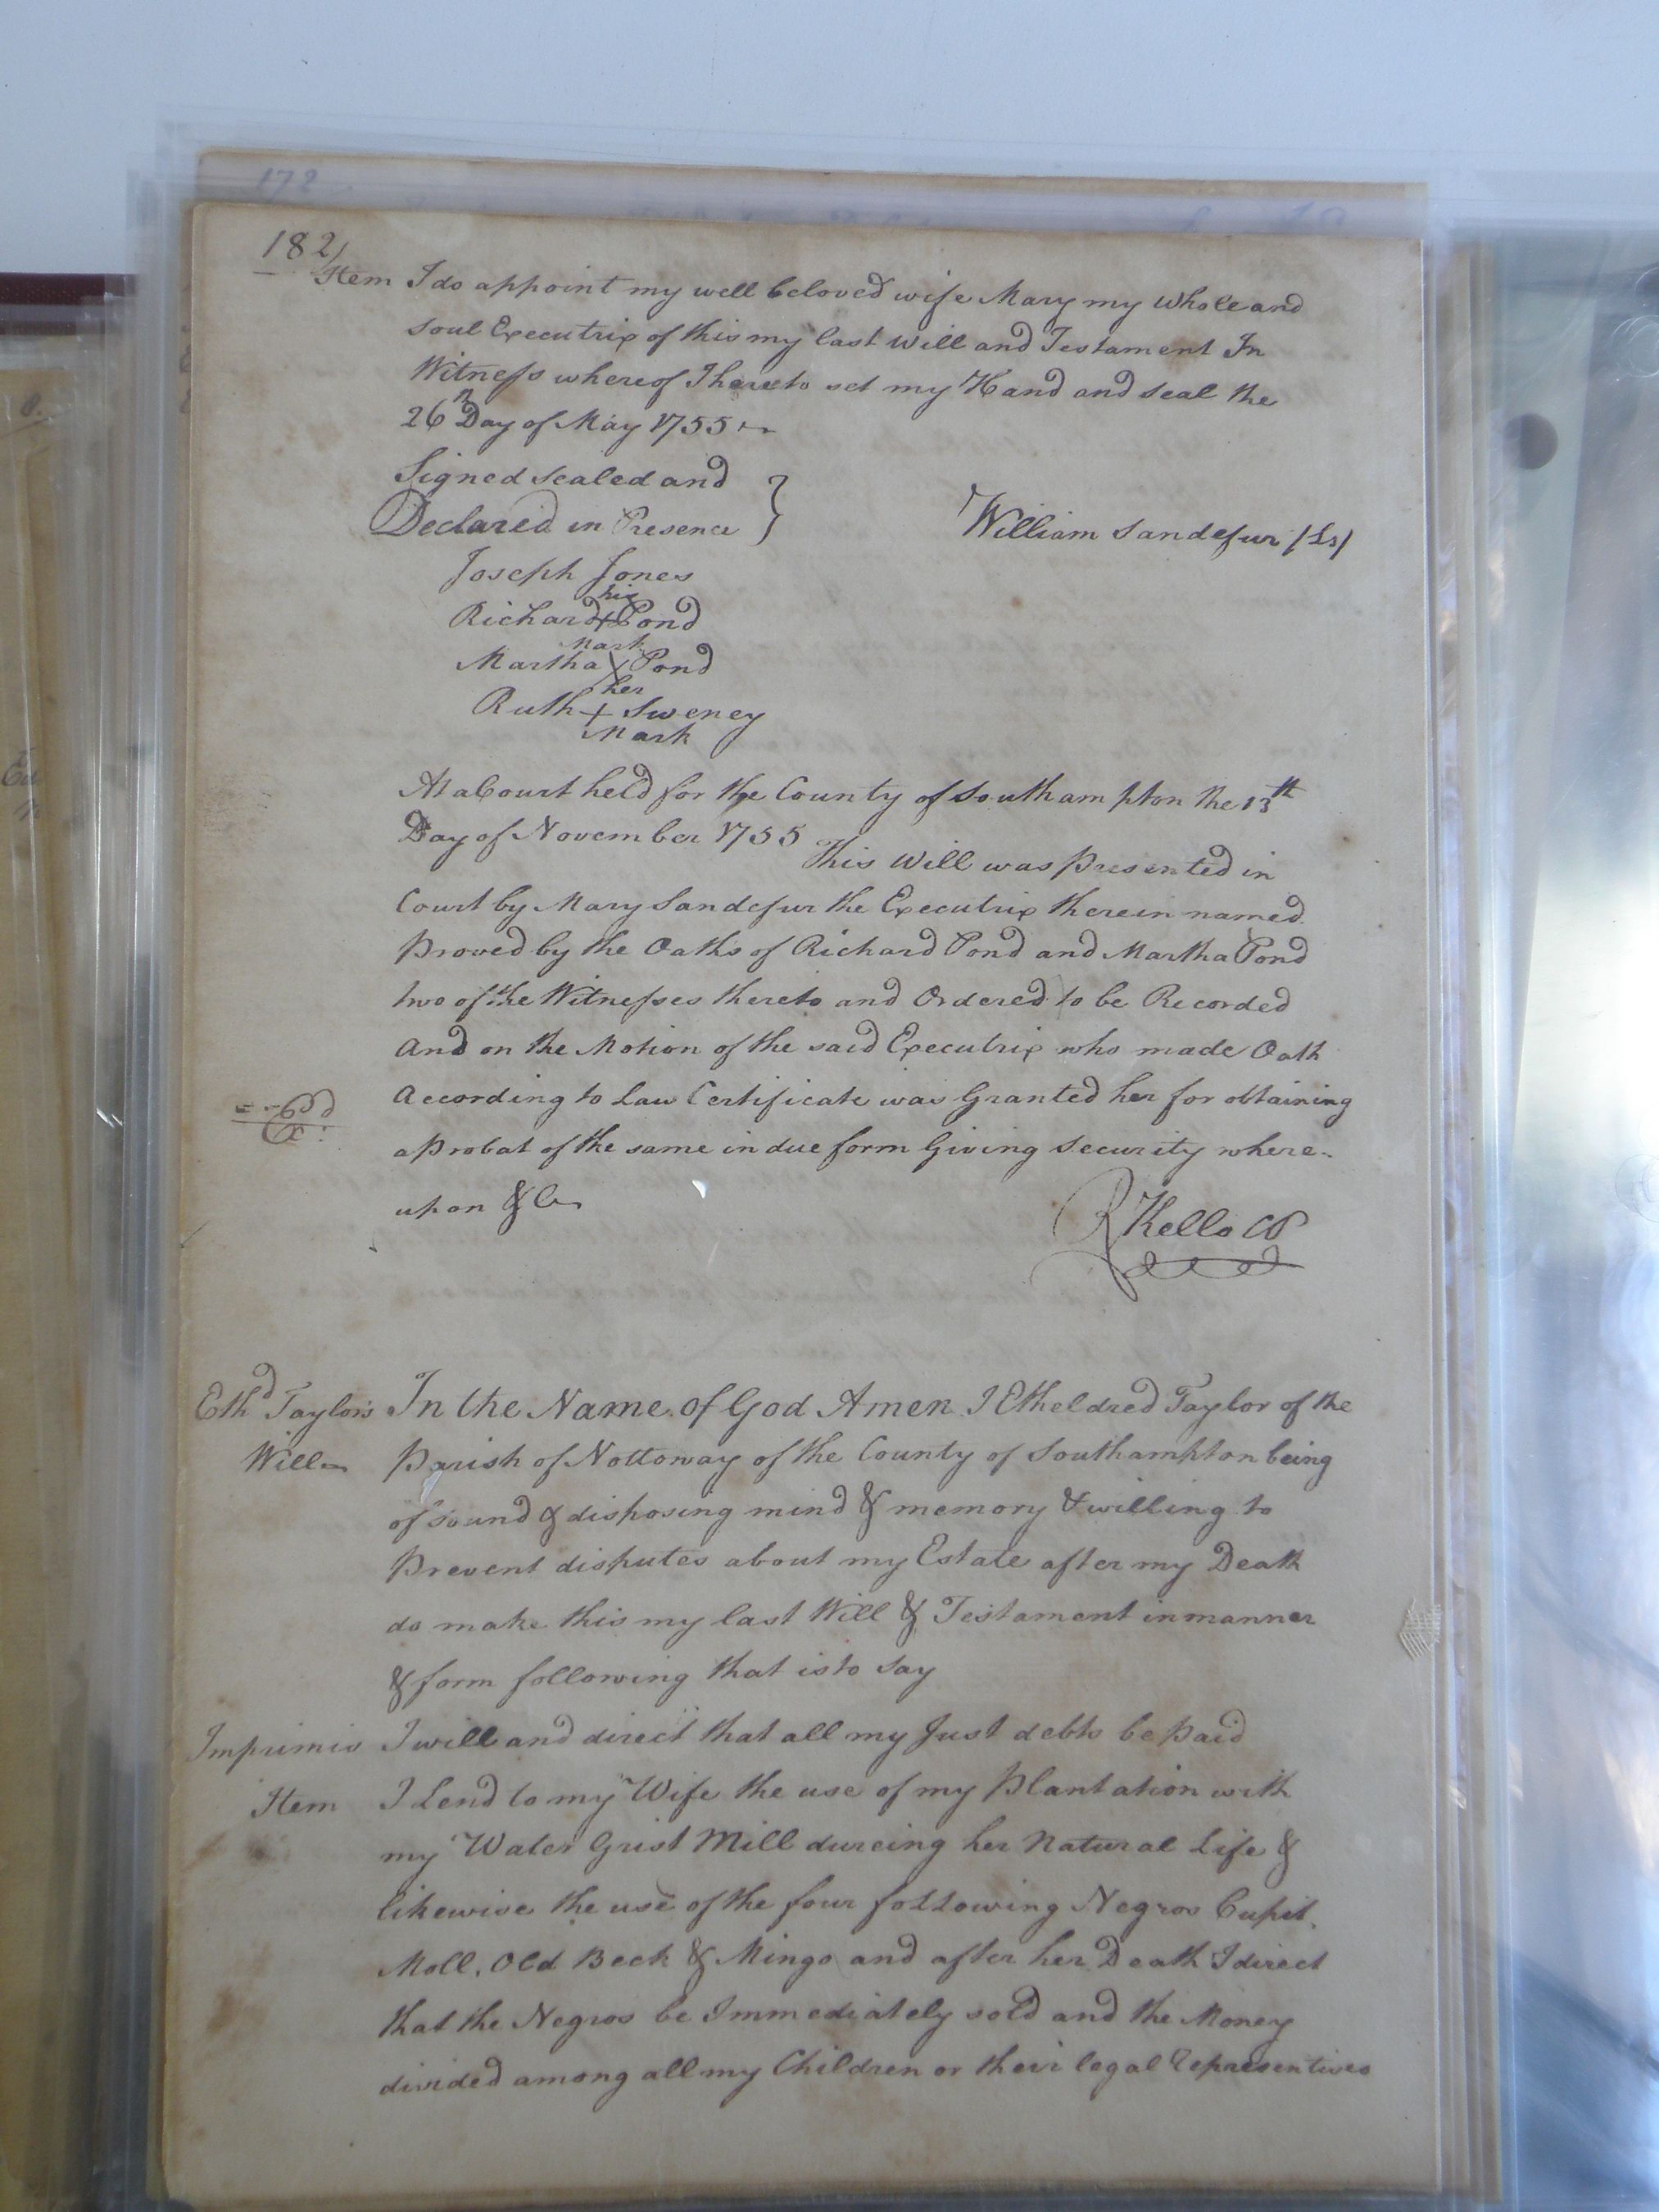 172
182
Item I do appoint my well beloved wife Mary my Whole and
soul Executrix of this my last will and Testament In
Witness whereof I hereto set my Hand and seal the
26th Day of May 1755
Signed sealed and
Declared in Presence } William Sandefur /Ls/
Joseph Jones
his
Richard + Pond
Mark
Martha X Pond
her
Ruth + Sweney
Mark
At a Court held for the County of Southampton the 13th
Day of November 1755
This Will was Presented in
Court by Mary Sandefur the Executrix therein named
Proved by the Oaths of Richard Pond and Martha Pond
two of the Witnesses thereto and Ordered to be Recorded
And on the Motion of the said Executrix who made Oath
According to Law Certificate was Granted her for obtaining
a Probat of the same in due form Giving Security where-
upon &C
Ex:
R Kello
Ethd Taylors In the Name of God Amen I Etheldred Taylor of the
Will Parish of Nottoway of the County of Southampton being
of sound & disposing mind & memory & willing to
Prevent disputes about my Estate after my Death
do make this my last Will & Testament in manner
& form following that is to say
Imprimis I will and direct that all my Just debts be paid
Item I Lend to my Wife the use of my Plantation with
my Water Grist Mill dureing her Natural Life &
likewise the use of the four following Negros Cupit,
Moll, Old Beck & Mingo and after her Death I direct
that the Negros be Immediately sold and the Money
divided among all my Children or their legal Representives